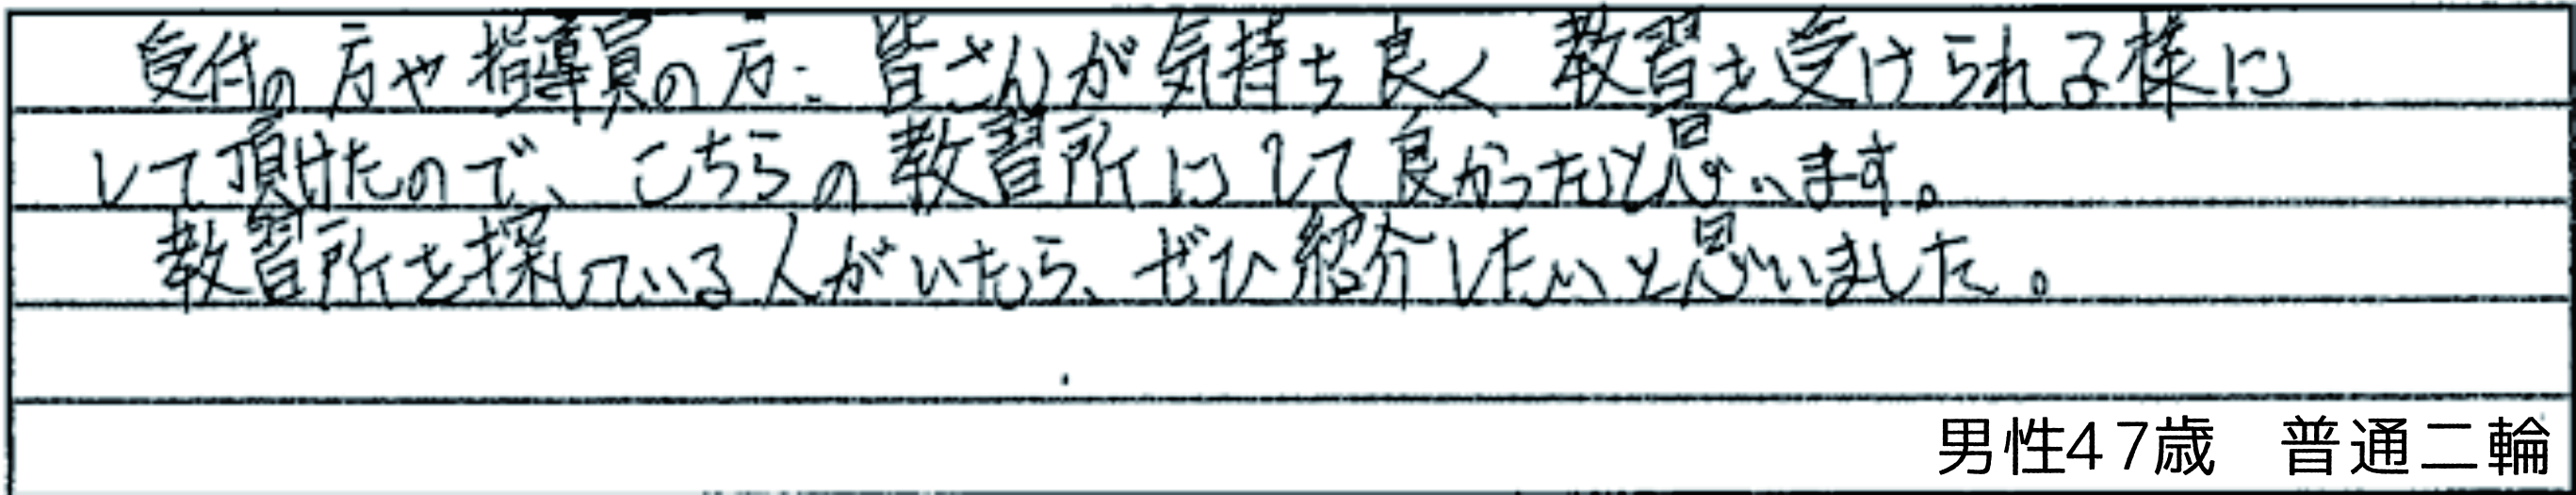 受付の方や指導員の方、皆さんが気持ち良く教習を受けられる様に
して頂けたので、こちらの教習所にして良かったと思います。
教習所を探している人がいたら、ぜひ紹介したいと思いました。
男性47歳 普通二輪